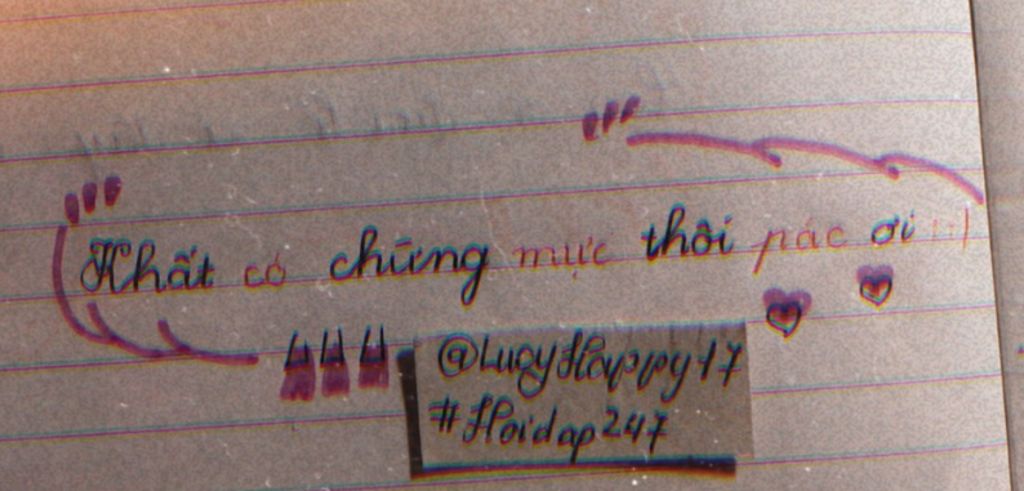 Khất có chừng mực thôi pác ơi :)
@LucyHappy17
#Hoidap247